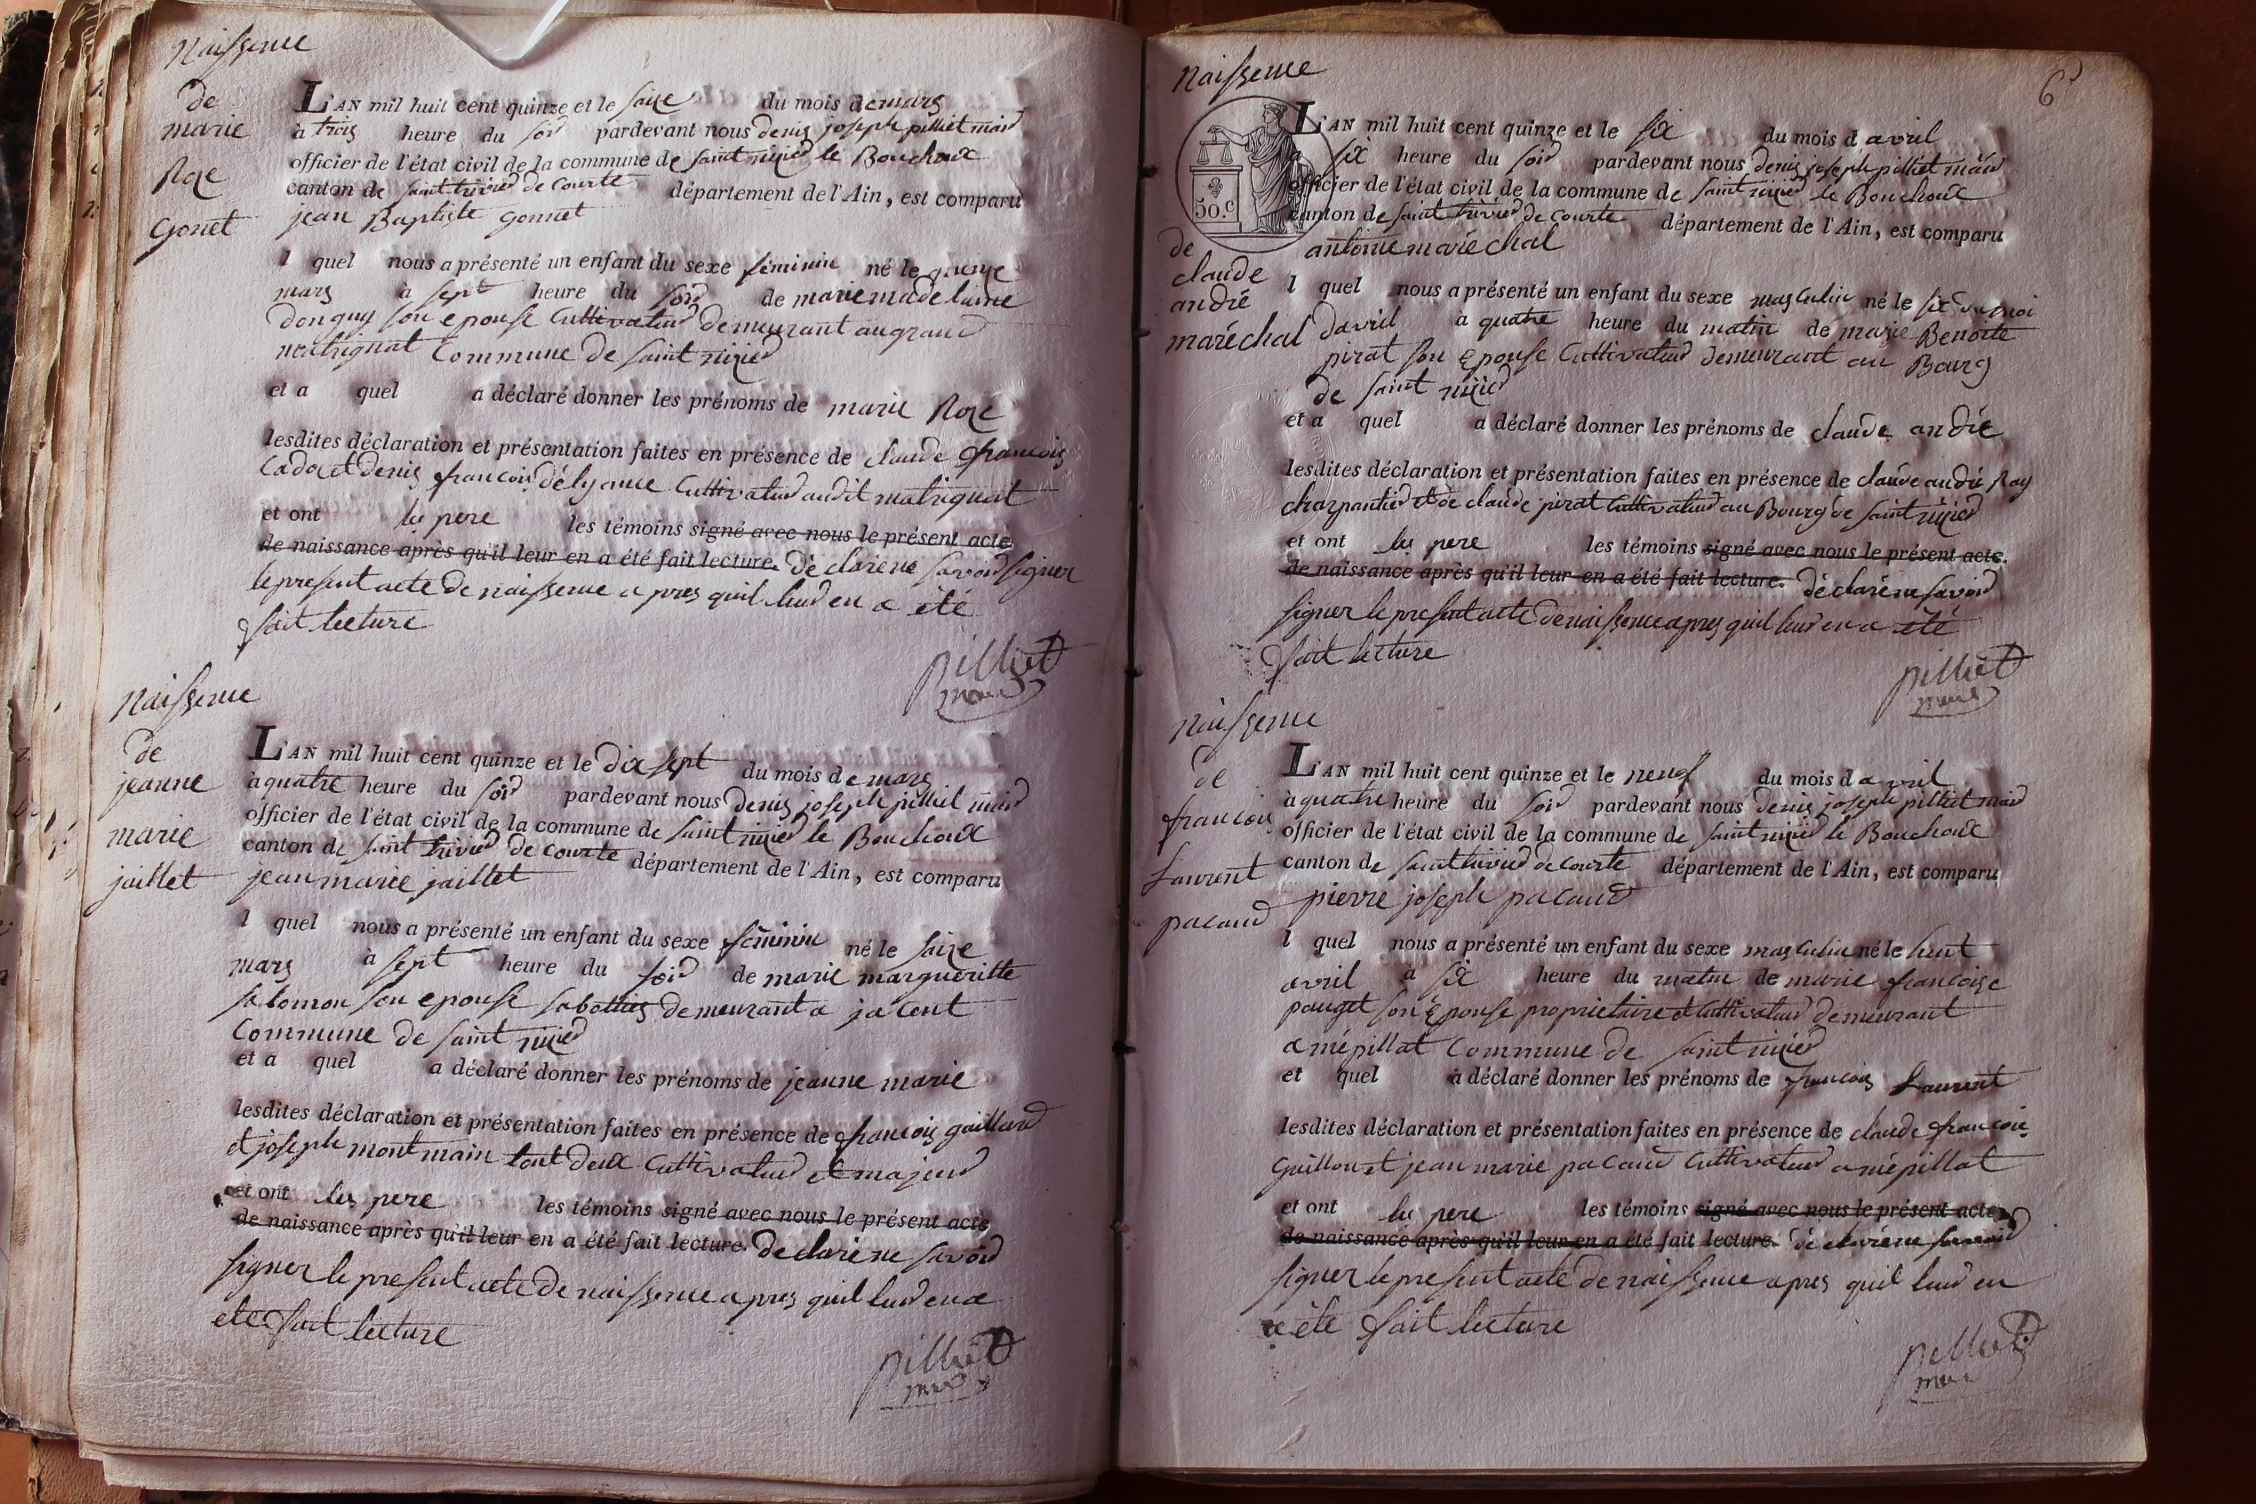 Naissence
de
marie
Roze
Gonet
L'AN mil huit cent quinze et le saize du mois de mars
à trois heure du soir pardevant nous denis joseph pilliet mair
officier de l'état civil de la commune de saint nizier le Bouchoux
canton de saint trivier de courte département de l'Ain, est comparu
jean Baptiste gonnet
l quel nous a présenté un enfant du sexe féminin né le quinze
mars à sept heure du soir de marie madelaine
donguy son epouse Cultivateur demeurant au grand
matrignat Commune de saint nizier
et a quel a déclaré donner les prénoms de marie Roze
lesdites déclaration et présentation faites en présence de claude françois
Cadoz et denis françois délyance Cultivateur audit matrignat
et ont les pere les témoins signé avec nous le présent acte
de naissance après qu'il leur en a été fait lecture. déclaré ne savoir signer
le present acte de naissence apres quil leur en a été
fait lecture
pilliet
mair
Naissence
de
jeanne
marie
jaillet
L'AN mil huit cent quinze et le dix sept du mois de mars
à quatre heure du soir pardevant nous denis joseph pilliet mair
officier de l'état civil de la commune de saint nizier le Bouchoux
canton de saint trivier de courte département de l'Ain, est comparu
jean marie jaillet
l quel nous a présenté un enfant du sexe féminin né le saize
mars à sept heure du soir de marie margueritte
salomon son epouse sabottiers demeurant a jacent
Commune de saint nizier
et a quel a déclaré donner les prénoms de jeanne marie
lesdites déclaration et présentation faites en présence de françois gaillard
et joseph montmain tout deux Cultivateur et majeur
et ont les pere les témoins signé avec nous le présent acte
de naissance après qu'il leur en a été fait lecture. declaré ne savoir
signer le present acte de naissence apres quil leur en a
eté fait lecture
pilliet
mair
6
Naissence
de
claude
andré
maréchal
50.c
L'AN mil huit cent quinze et le six du mois d avril
à six heure du soir pardevant nous denis joseph pilliet mair
officier de l'état civil de la commune de saint nizier le Bouchoux
canton de saint trivier de courte département de l'Ain, est comparu
antoine maréchal
l quel nous a présenté un enfant du sexe masculin né le six du moi
davril à quatre heure du matin de marie Benoite
pirat son Epouse Cultivateur demeurant au Bourg
de saint nizier
et a quel a déclaré donner les prénoms de claude andré
lesdites déclaration et présentation faites en présence de claude andré Ray
charpantier et de claude pirat Cultivateur au Bourg de saint nizier
et ont les pere les témoins signé avec nous le présent acte.
de naissance après qu'il leur en a été fait lecture. déclaré ne savoir
signer le present acte de naissence apres quil leur en a été
fait lecture
pilliet
mair
Naissence
de
françois
Laurent
pacaud
L'AN mil huit cent quinze et le neuf du mois d avril
à quatre heure du soir pardevant nous denis joseph pilliet mair
officier de l'état civil de la commune de saint nizier le Bouchoux
canton de saint trivier de courte département de l'Ain, est comparu
pierre joseph pacaud
l quel nous a présenté un enfant du sexe masculin né le huit
avril à six heure du matin de marie françoise
pauget son Epouse proprietaire et Cultivateur demeurant
a mépillat Commune de saint nizier
et quel a déclaré donner les prénoms de françois Laurent
lesdites déclaration et présentation faites en présence de claude françois
Guillon et jean marie pacaud Cultivateur a mépillat
et ont les pere les témoins signé avec nous le présent acte
de naissance après qu'il leur en a été fait lecture. déclaré ne savoir
signer le present acte de naissence apres quil leur en
a été fait lecture
pilliet
mair